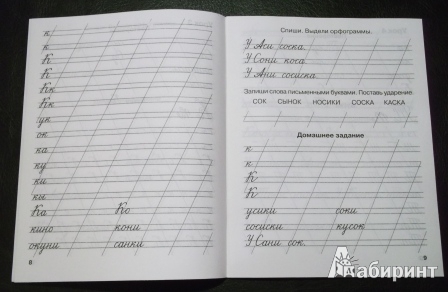 к
к
К
К
Кк
Кк
ук
ок
ка
ку
ки
кы
Ка Ко
кино кони
окуни санки
8
Спиши. Выдели орфограммы.
У Аси соска.
У Сони коса.
У Ани сосиска.
Запиши слова письменными буквами. Поставь ударение.
СОК СЫНОК НОСИКИ СОСКА КАСКА
Домашнее задание
к
к
К
К
усики соки
сосиски кусок
У Сани сок.
9
Лабиринт